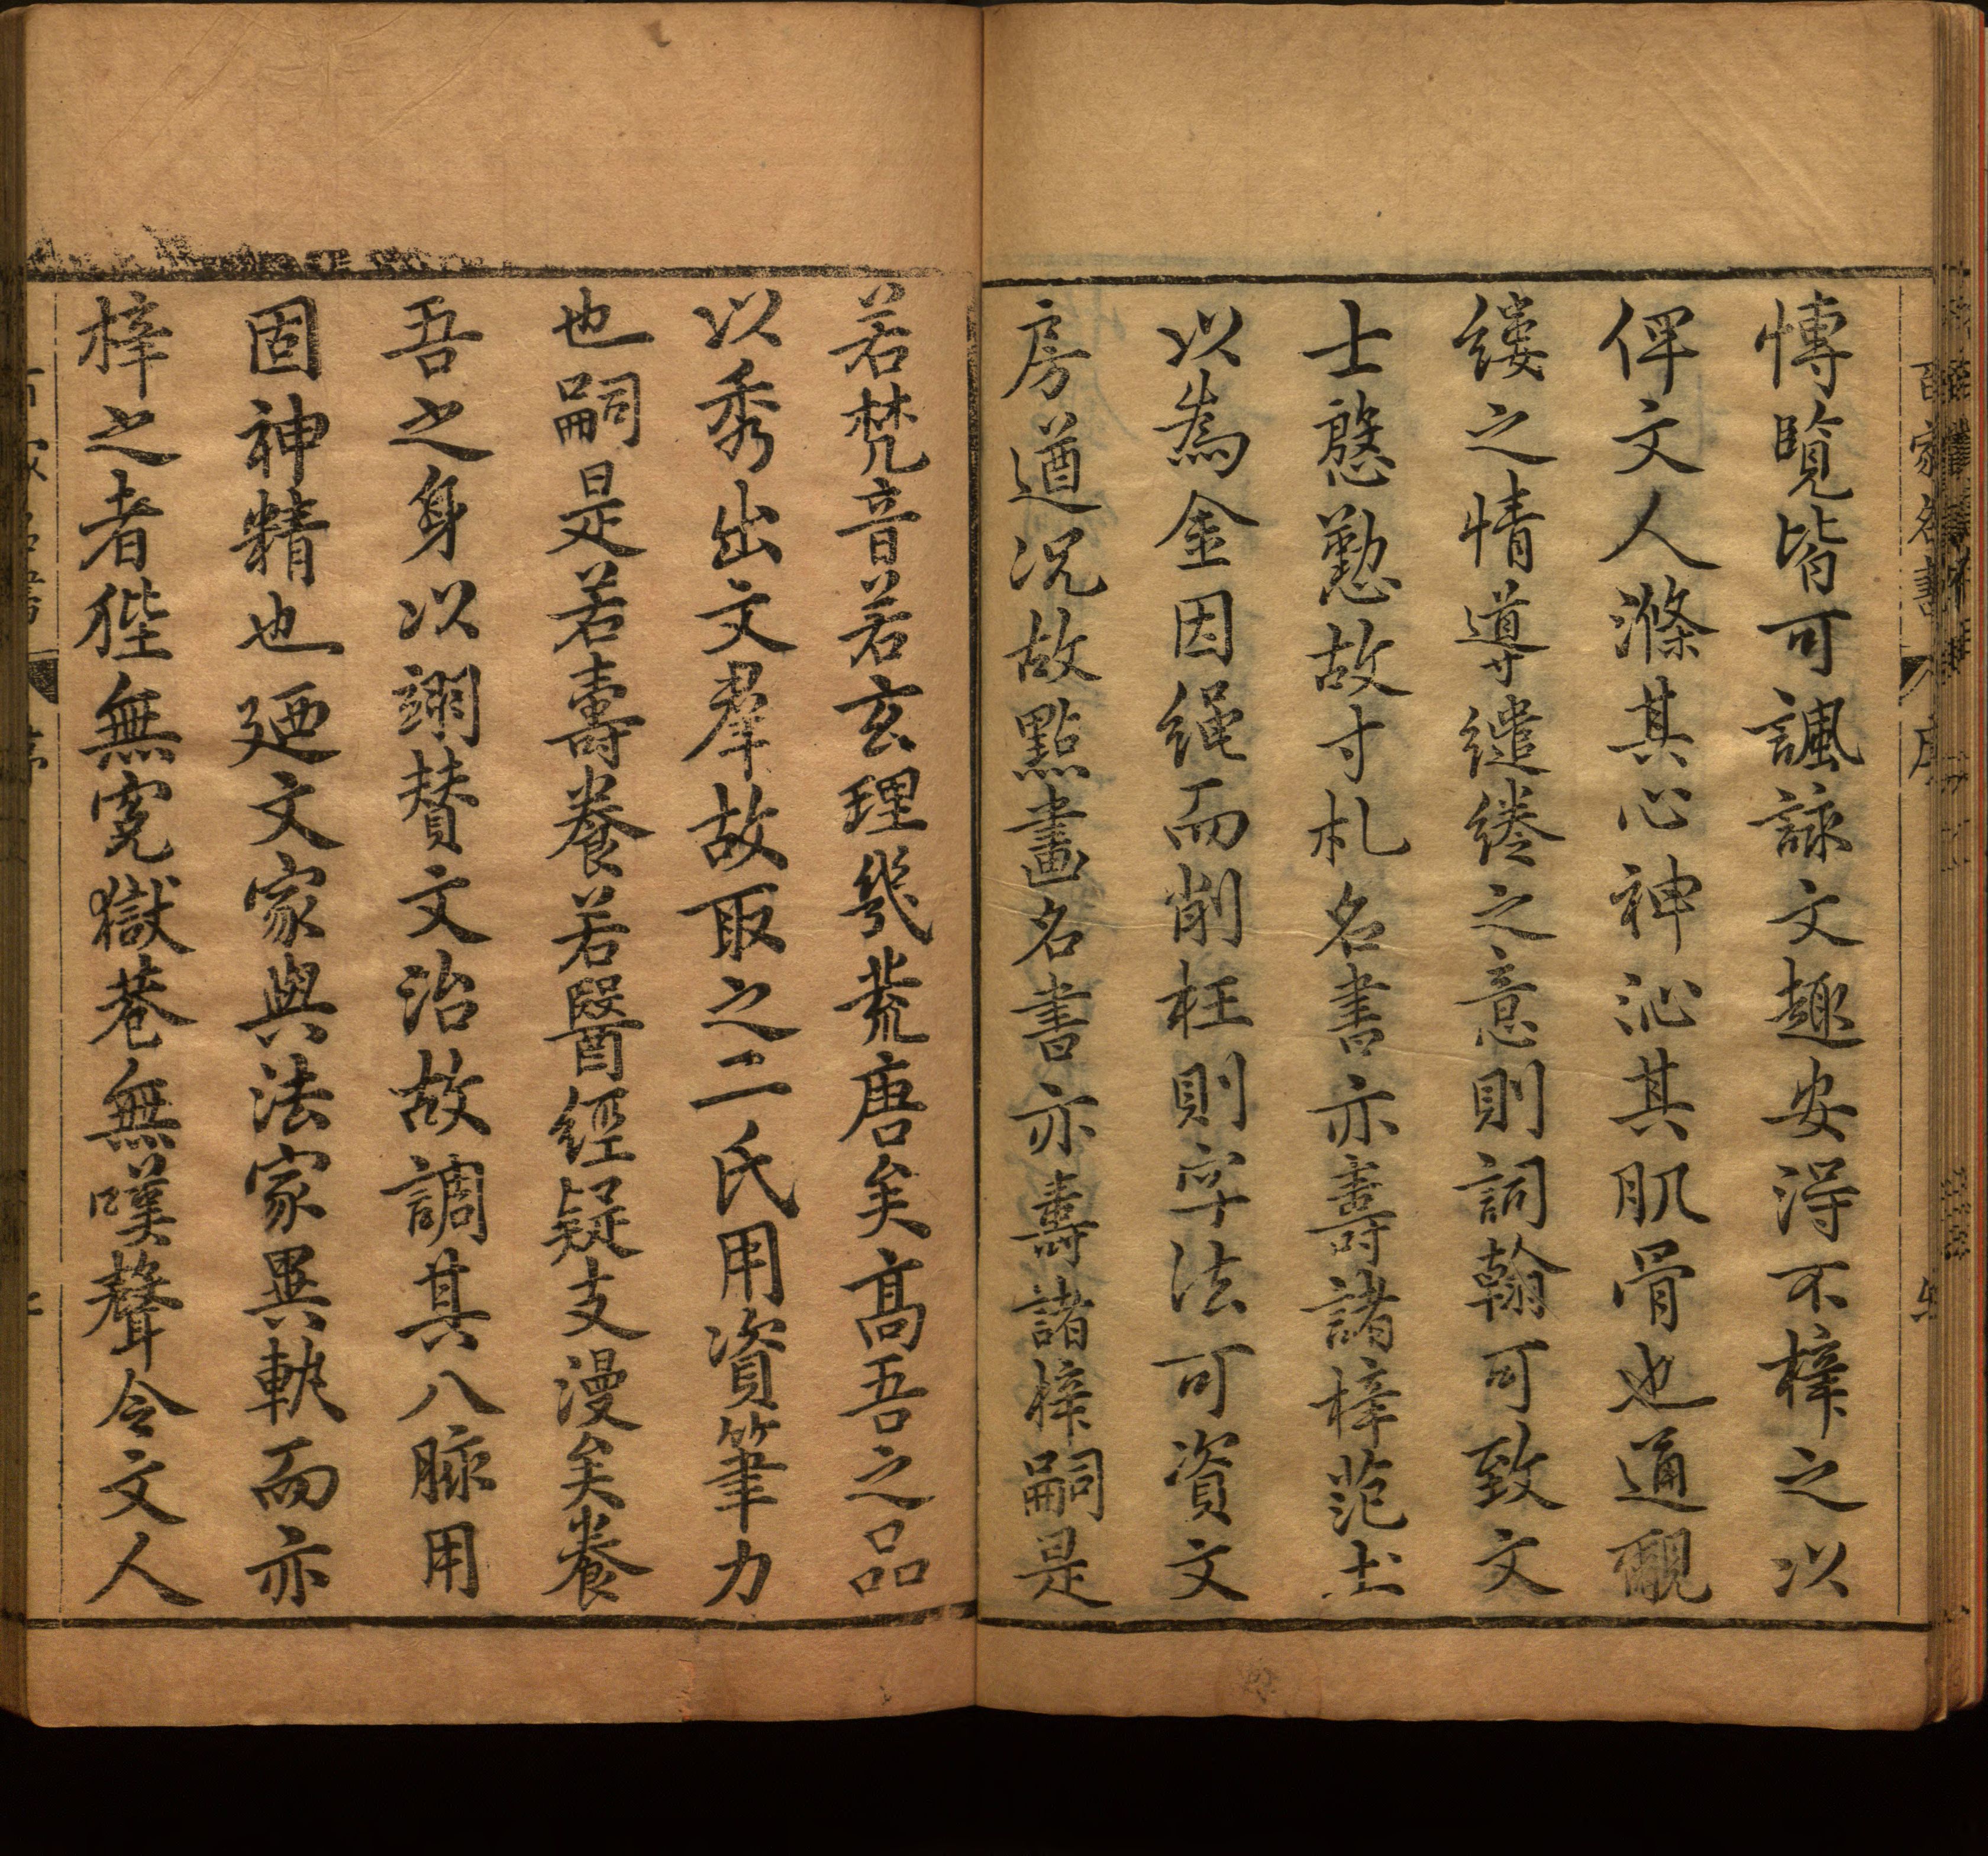 百家名書 序
慱覽皆可諷詠文趣安淂不梓之以
俾文人滌其心神沁其肌骨也逈覩
縷之情導繾綣之意則詞翰可致文
士慇懃故寸札名書亦壽諸梓范土
以為金因繩而削枉則字法可資文
房遒况故點畫名書亦壽諸梓嗣是
若梵音若玄理幾荒唐矣高吾之品
以秀出文羣故取之二氏用資筆力
也嗣是若壽養若醫經疑支漫矣養
吾之身以翊賛文治故調其八脉用
固神精也廼文家與法家異軌而亦
梓之者狴無寃獄巷無嘆聲令文人